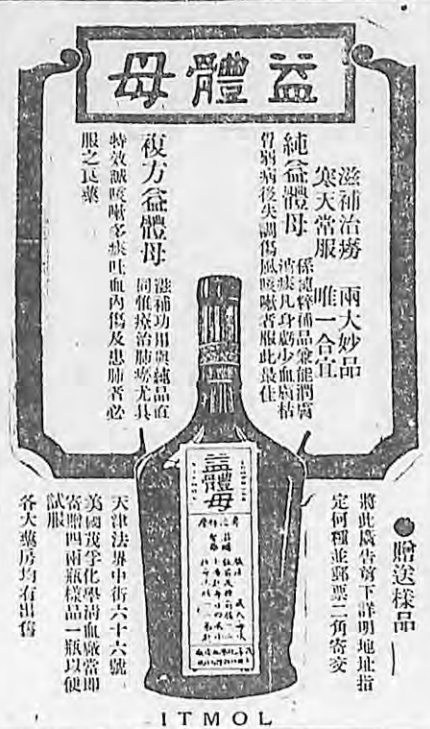 益體母
滋補治癆　兩大妙品
寒天常服　唯一合宜
純益體母
係純粹補品兼能潤肺
清痰凡身虧少血腦枯
骨弱病後失調傷風咳嗽者服此最佳
複方益體母
滋補功用與純品直
同惟療治肺癆尤具
特效誠咳嗽多痰吐血內傷及患肺者必
服之良藥
益體母
●贈送樣品
將此廣告剪下詳明地址指
定何種並郵票二角寄交
天津法界中街六十六號
美國茂孚化學清血廠當即
寄贈四兩瓶樣品一瓶以便
試服
各大藥房均有出售
ITMOL